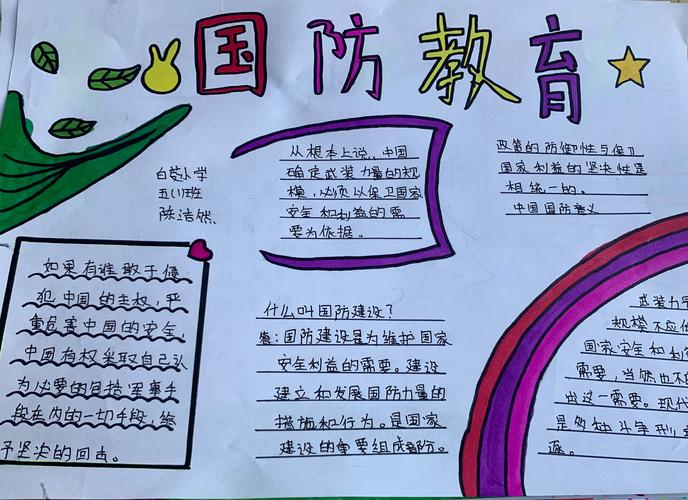 国防教育
小学
五(1)班
陈洁然
从根本上说,中国
确定武装力量的规
模,必须以保卫国家
安全和利益的需
要为依据。
政策的防御性与保卫
国家利益的坚决性是
相统一的。
中国国防意义
如果有谁敢于侵
犯中国的主权,严
重危害中国的安全,
中国有权采取自己认
为必要的包括军事手
段在内的一切手段,给
予坚决的回击。
什么叫国防建设?
答:国防建设是为维护国家
安全利益的需要。建设
建立和发展国防力量的
措施和行为。是国家
建设的重要组成部份。
武装力
规模不应
国家安全和利
需要,当然也不
出这一需要。现代
是多种斗争